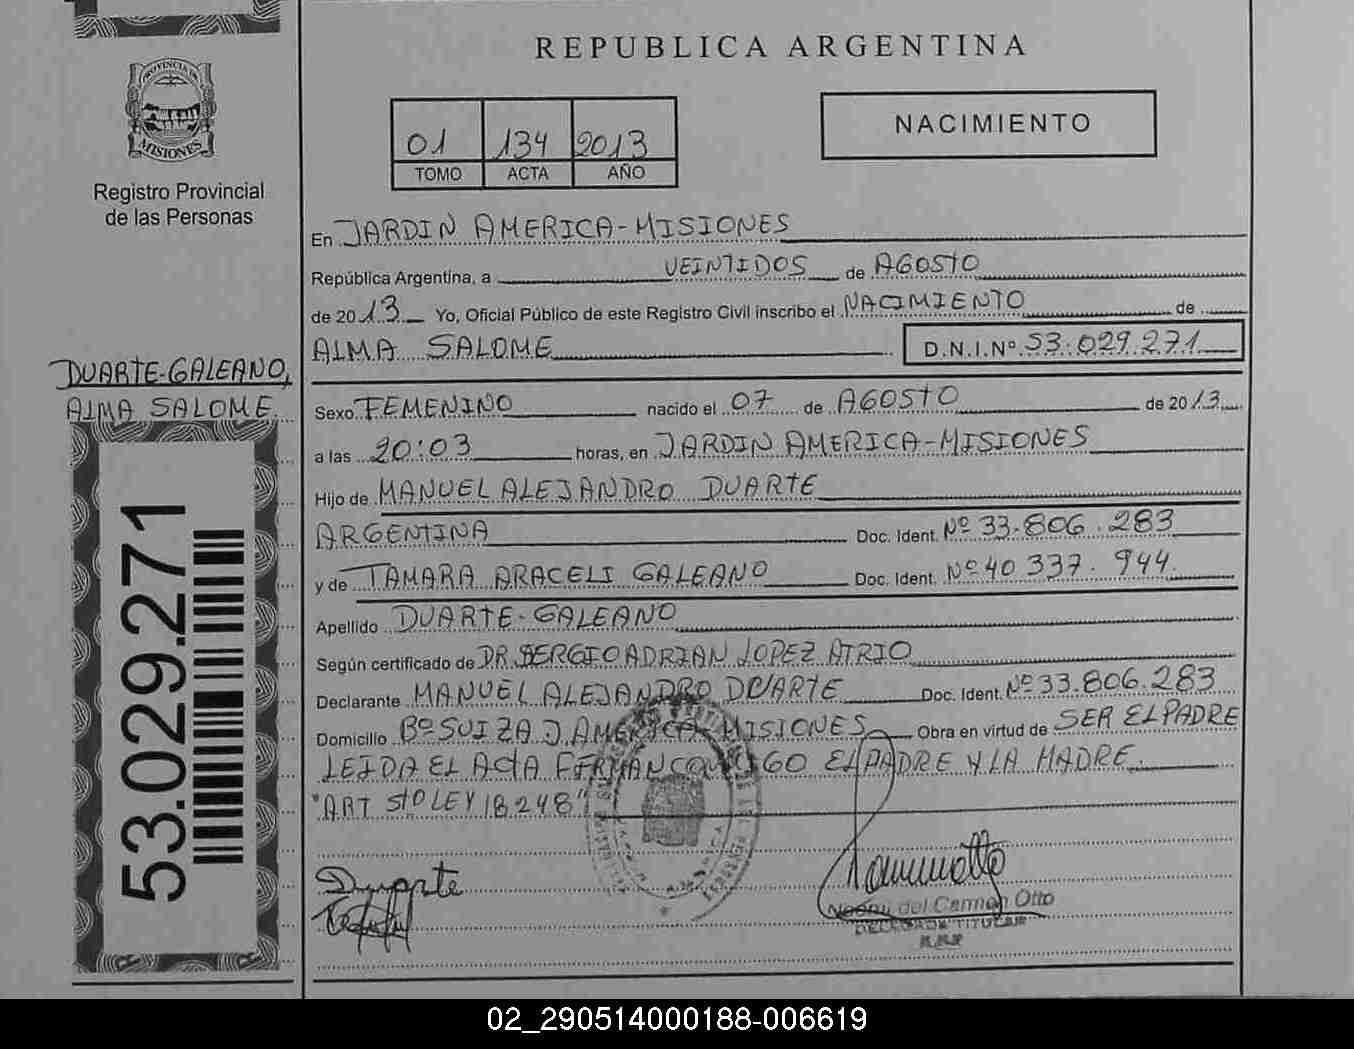 REPUBLICA ARGENTINA
PROVINCIA DE
MISIONES
Registro Provincial
de las Personas
01 134 2013
TOMO ACTA AÑO
NACIMIENTO
En JARDIN AMERICA-MISIONES
República Argentina, a VEINTIDOS de AGOSTO
de 2013 Yo, Oficial Público de este Registro Civil inscribo el NACIMIENTO de
ALMA SALOME D.N.I.Nº 53.029.271
DUARTE-GALEANO,
ALMA SALOME
53.029.271
Sexo FEMENINO nacido el 07 de AGOSTO de 2013
a las 20:03 horas, en JARDIN AMERICA-MISIONES
Hijo de MANUEL ALEJANDRO DUARTE
ARGENTINA Doc. Ident. Nº 33.806.283
y de TAMARA ARACELI GALEANO Doc. Ident. Nº 40 337.944
Apellido DUARTE-GALEANO
Según certificado de DR. SERGIO ADRIAN LOPEZ ATRIO
Declarante MANUEL ALEJANDRO DUARTE Doc. Ident. Nº 33.806.283
Domicilio Bº SUIZA J. AMERICA MISIONES Obra en virtud de SER EL PADRE
LEIDA EL ACTA FIRMAN CONMIGO EL PADRE Y LA MADRE.
"ART 5to LEY 18248"
Duarte
Noemi del Carmen Otto
DELEGADA TITULAR
02_290514000188-006619